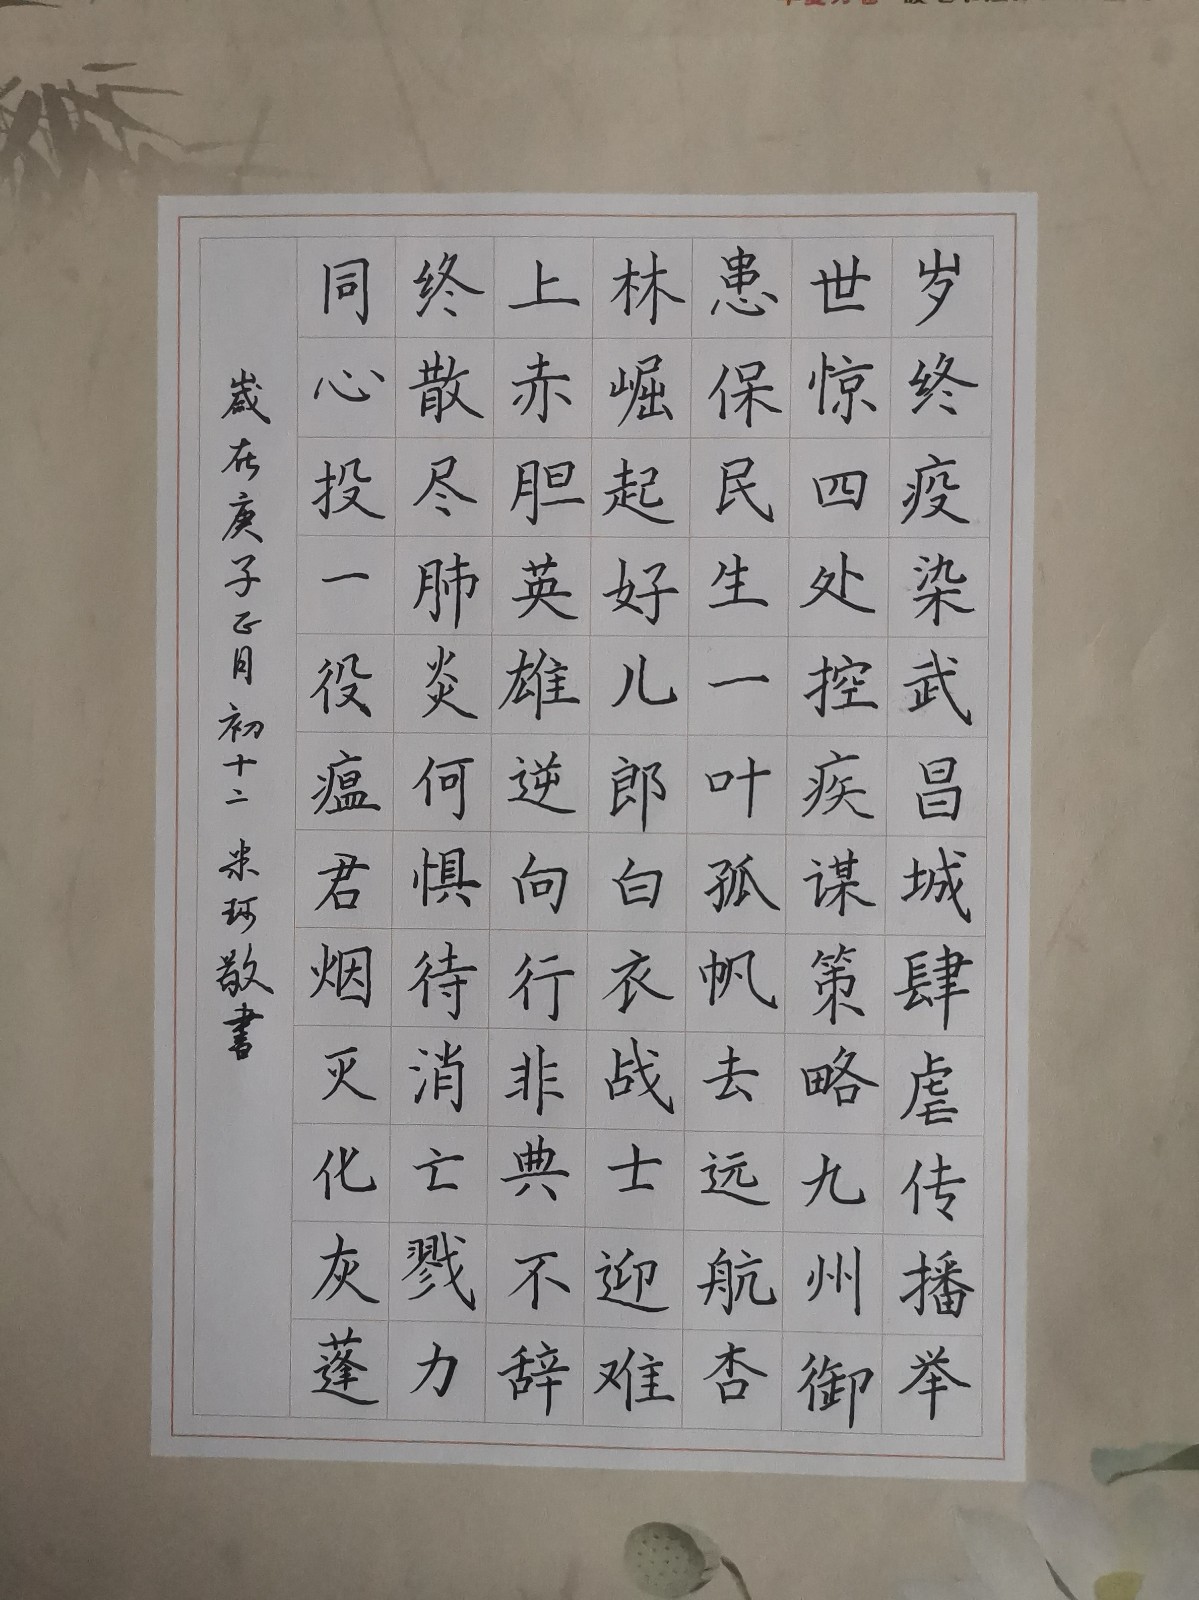 岁终疫染武昌城肆虐传播举
世惊四处控疾谋策略九州御
患保民生一叶孤帆去远航杏
林崛起好儿郎白衣战士迎难
上赤胆英雄逆向行非典不辞
终散尽肺炎何惧待消亡戮力
同心投一役瘟君烟灭化灰蓬
歲在庚子正月初十二 米珂敬書